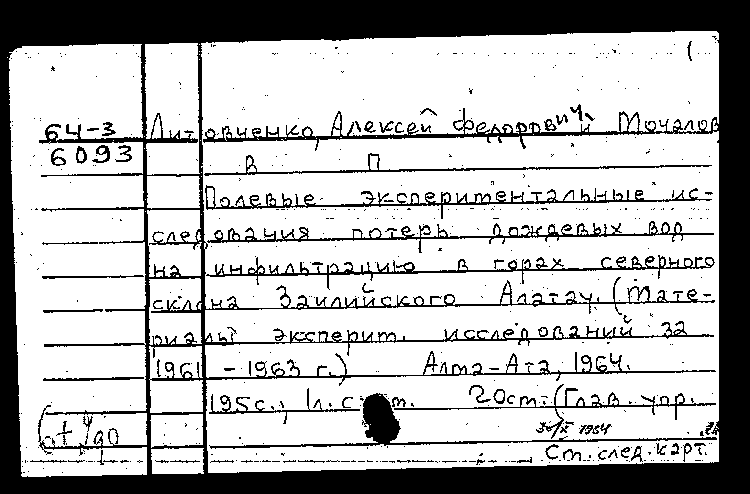 64-3 Литовченко, Алексей Федорович и Мочалов
6093 В П
Полевые экспериментальные ис-
следования потерь дождевых вод
на инфильтрацию в горах северного
склона Заилийского Алатау. (Мате-
риалы эксперит. исследований за
1961 - 1963 г.) Алма-Ата, 1964.
195 с.; 1 л. с т. 20 ст. (Глав. упр.
1964
Ст. след. карт.